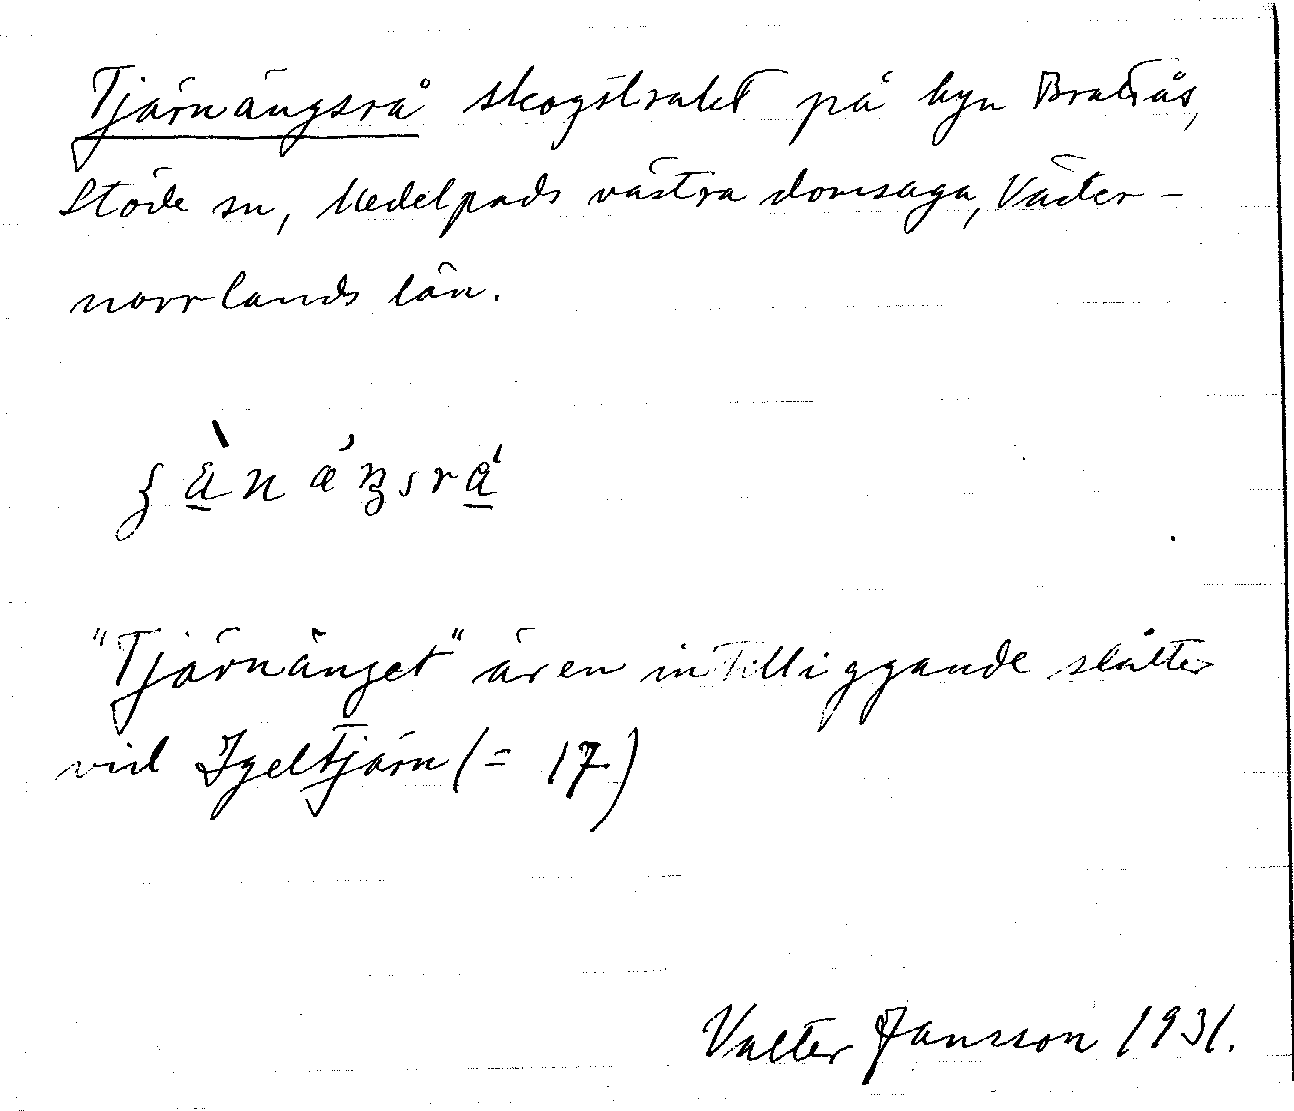 Tjärnängsrå skogstrakt på byn Bratsås,
Stöde sn, Medelpads västra domsaga, Väster-
norrlands län.
"Tjärnänget" är en intilliggande slåtter
vid Igeltjärn (= 17)
Valter Jansson 1931.